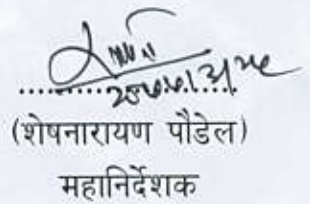 (शेषनारायण पौडेल)
महानिर्देशक